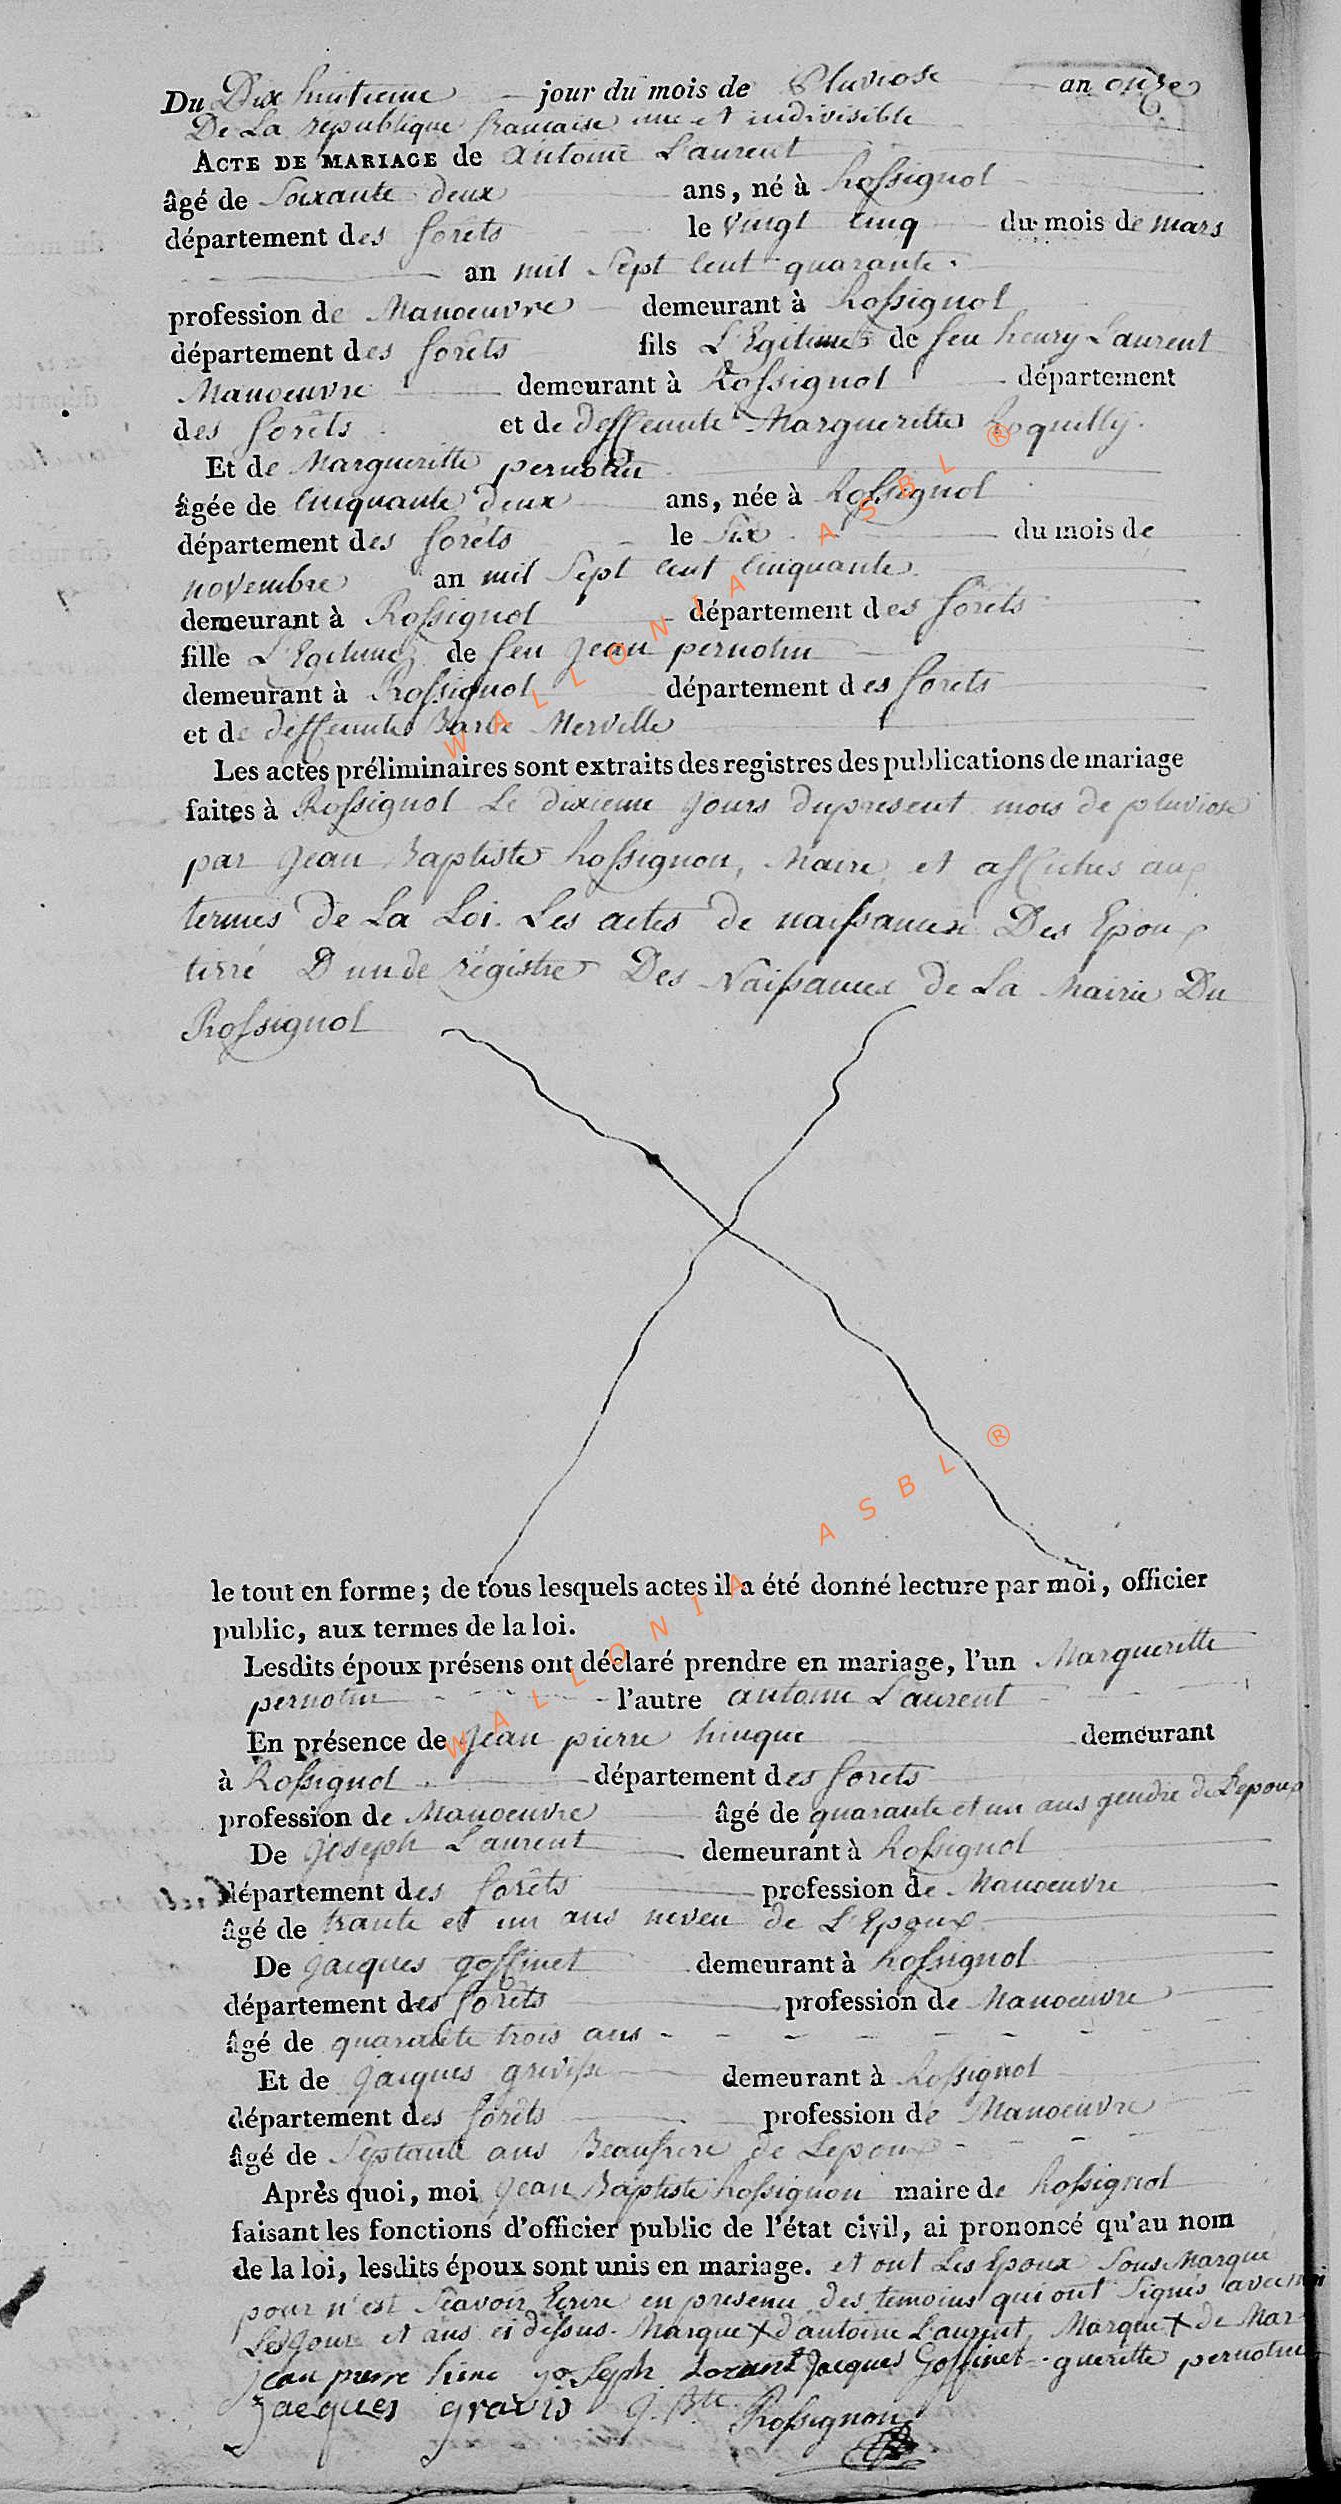 Du Dix huitieme jour du mois de Pluviose an onze
De La republique francaise une et indivisible
ACTE DE MARIAGE de antoine Laurent
âgé de Soixante deux ans, né à Rossignol
département des forêts le vingt cinq du mois de mars
an mil Sept Cent quarante.
profession de Manoeuvre demeurant à Rossignol
département des forêts fils L'Egitime de feu henry Laurent
Manoeuvre demeurant à Rossignol département
des forêts et de deffeunte Margueritte
Et de Margueritte pernotin
âgée de Cinquante deux ans, née à Rossignol
département des forêts le Six du mois de
novembre an mil Sept Cent Cinquante
demeurant à Rossignol département des forêts
fille L'Egitime de feu Jean pernotin
demeurant à Rossignol département des forets
et de deffeunte Barbe Merville
Les actes préliminaires sont extraits des registres des publications de mariage
faites à Rossignol Le dixieme Jours dupresent mois de pluviose
par Jean Baptiste Rossignon, Maire, et affiches aux
termes de La Loi. Les actes de naissances Des Epoux
tirré D'unde régistre Des Naissances de La Mairie Du
Rossignol
le tout en forme ; de tous lesquels actes il a été donné lecture par moi, officier
public, aux termes de la loi.
Lesdits époux présens ont déclaré prendre en mariage, l'un Margueritte
pernotin l'autre antoine Laurent
En présence de Jean pierre hinque demeurant
à Rossignol département des forets
profession de Manoeuvre âgé de quarante et un ans gendre de Lepoux
De Joseph Laurent demeurant à Rossignol
département des forêts profession de Manoeuvre
âgé de trante et un ans neveu de L'Epoux
De Jacques goffinet demeurant à Rossignol
département des forêts profession de Manoeuvre
âgé de quarante trois ans
Et de Jacques grivisse demeurant à Rossignol
département des forêts profession de Manoeuvre
âgé de Septante ans Beaufrere de Lepoux
Après quoi, moi Jean Baptiste Rossignon maire de Rossignol
faisant les fonctions d'officier public de l'état civil, ai prononcé qu'au nom
de la loi, lesdits époux sont unis en mariage. et ont Les Epoux Sous Marqué
pour n'est Scavoir Ecrire en presence des temoins qui ont Signés avec moi
Les Jour et ans ci dessus. Marque X d'antoine Laurent, Marque X de Mar-
Jean pierre hinc Joseph Lorant Jacques Goffinet gueritte pernotin
Jacques gravis J. Bte Rossignon
WALLONIA ASBL ®
WALLONIA ASBL ®